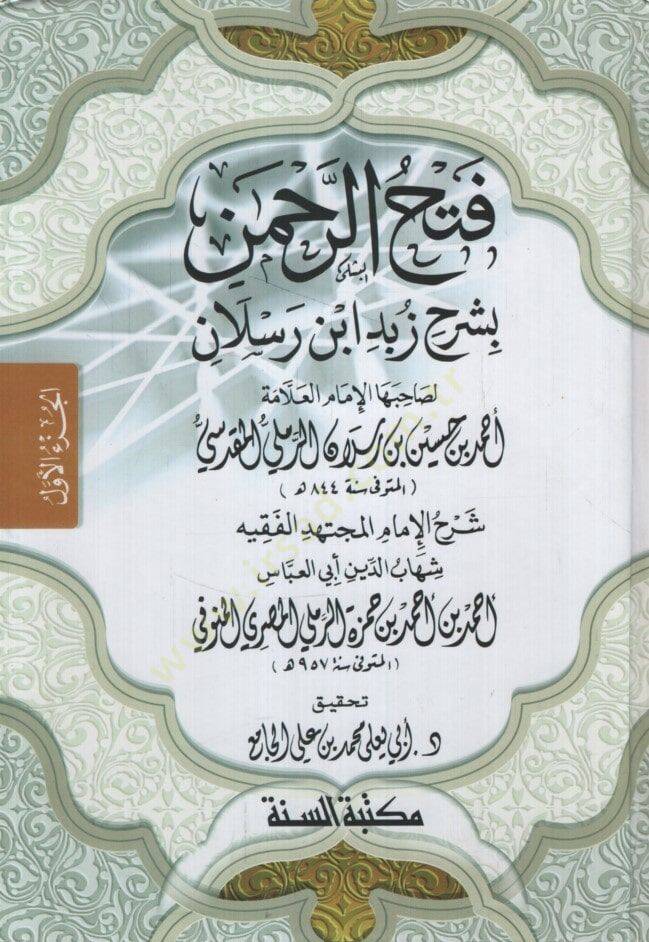 فَتْحُ الرَّحْمَنِ
بِشَرْحِ زُبَدِ ابْنِ رَسْلَانِ
لصَاحِبِهَا الإِمَامِ العَلَّامَة
أحمد بن حسين بن رسلان الرملي المقدسي
( المتوفى سنة ٨٤٤ هـ )
شَرْحُ الإِمَامِ المجتَهِدِ الفَقِيه
شِهَابُ الدِّينِ أبي العبَّاسِ
أحمد بن أحمد بن حمزة الرملي المصري المنوفي
( المتوفى سنة ٩٥٧ هـ )
تحقيق
د. أبي يعلى محمد بن علي الجامع
مكتبة السنة
الجزء الأول